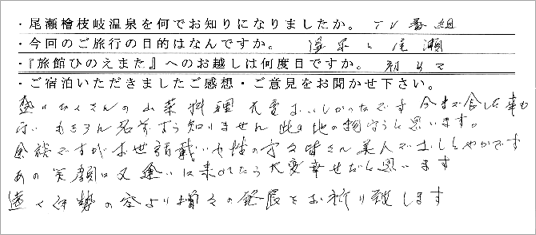 ・尾瀬檜枝岐温泉を何でお知りになりましたか。 TV番組
・今回のご旅行の目的はなんですか。 温泉と尾瀬
・『旅館ひのえまた』へのお越しは何度目ですか。 初めて
・ご宿泊いただきましたご感想・ご意見をお聞かせ下さい。
たくさんの山菜料理 大変おいしかったです 今まで食した事も
ない もちろん名前すら知りません 此の地の物 と思います。
ですがお世話 女性の 皆さん美人でいらっしゃいです
あの笑顔に又逢いに来れたら大変幸せだと思います
遠く伊勢の空より増々の発展をお祈り致します